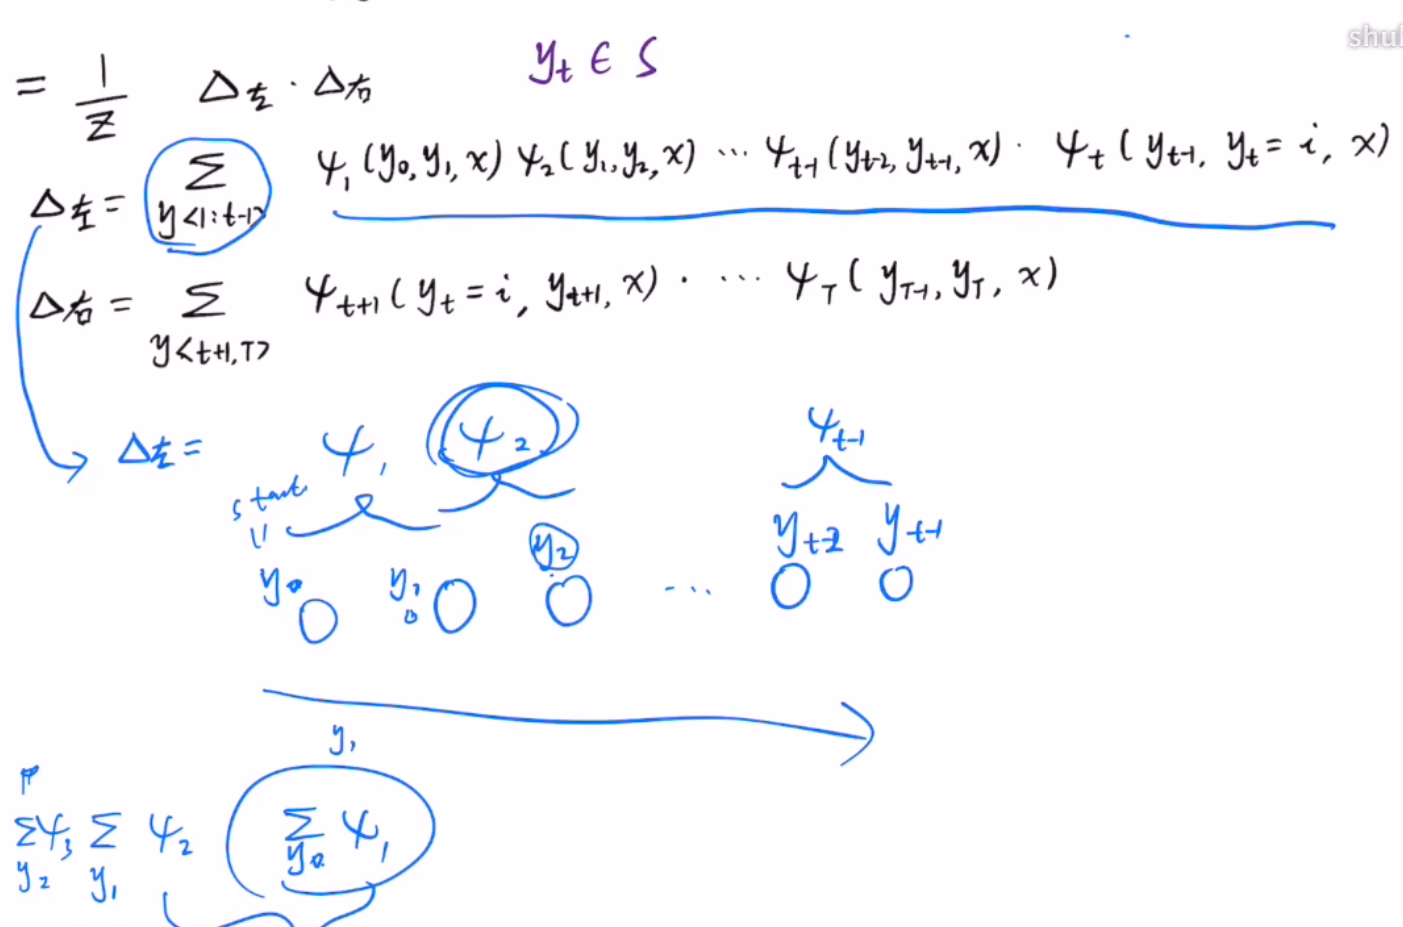 shu
= 1/Z Δ左 · Δ右 y_t ∈ S
Δ左 = Σ_{y<1:t-1>} ψ_1(y_0, y_1, x) ψ_2(y_1, y_2, x) ⋯ ψ_{t-1}(y_{t-2}, y_{t-1}, x) · ψ_t(y_{t-1}, y_t = i, x)
Δ右 = Σ_{y<t+1,T>} ψ_{t+1}(y_t = i, y_{t+1}, x) · ⋯ ψ_T(y_{T-1}, y_T, x)
Δ左 = ψ_1 ψ_2 ψ_{t-1}
start
y_0 y_1 y_2 ⋯ y_{t-2} y_{t-1}
y_1
Σ_{y_2} ψ_3 Σ_{y_1} ψ_2 Σ_{y_0} ψ_1